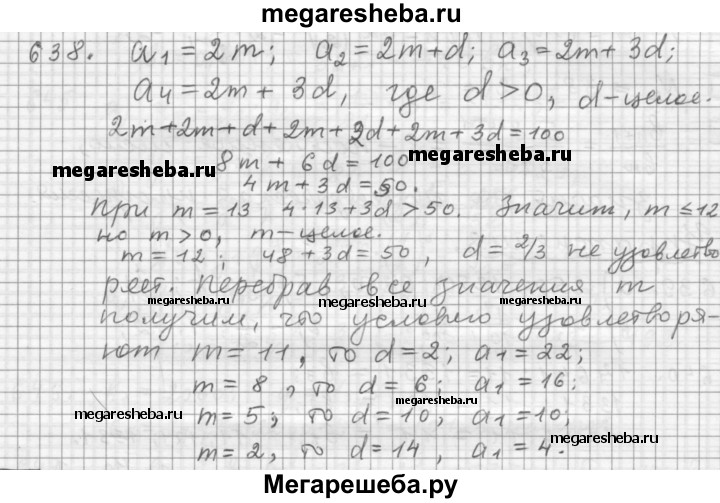 megaresheba.ru
638. a₁ = 2m; a₂ = 2m+d; a₃ = 2m+ 3d;
a₄ = 2m + 3d, где d>0, d-целое.
2m+2m+d+2m+2d+2m+3d=100
megaresheba.ru
megaresheba.ru
8m + 6d = 100
4m+3d=50.
При m=13 4·13+3d>50. Значит, m≤12
но m>0, m-целое.
m=12; 48+3d=50, d=2/3 не удовлетво
ряет. Перебрав все значения m
megaresheba.ru megaresheba.ru megaresheba.ru
получим, что условию удовлетворя-
ют m=11, то d=2; a₁=22;
m=8, то d=6; a₁=16;
megaresheba.ru
m=5; то d=10, a₁=10;
megaresheba.ru
m=2, то d=14, a₁=4.
Мегарешеба.ру